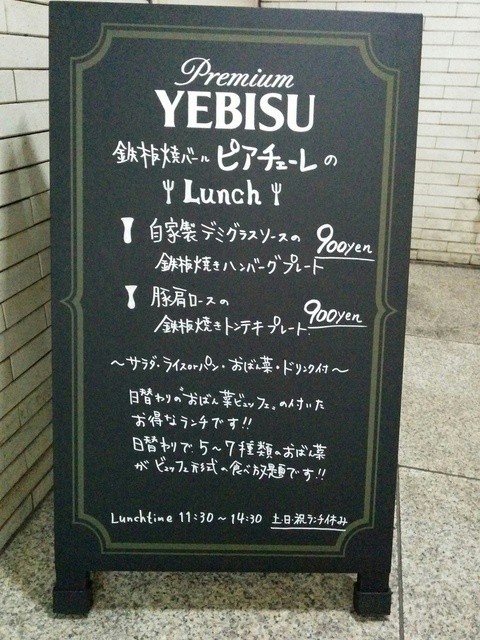 Premium
YEBISU
鉄板焼バール ピアチェーレの
Lunch
自家製デミグラスソースの 900yen
鉄板焼きハンバーグプレート
豚肩ロースの 900yen
鉄板焼きトンテキプレート
～サラダ・ライスorパン・おばん菜・ドリンク付～
日替わりの"おばん菜ビュッフェ"の付いた
お得なランチです!!
日替わりで5～7種類のおばん菜
がビュッフェ形式の食べ放題です!!
Lunchtime 11:30～14:30 土・日・祝ランチ休み